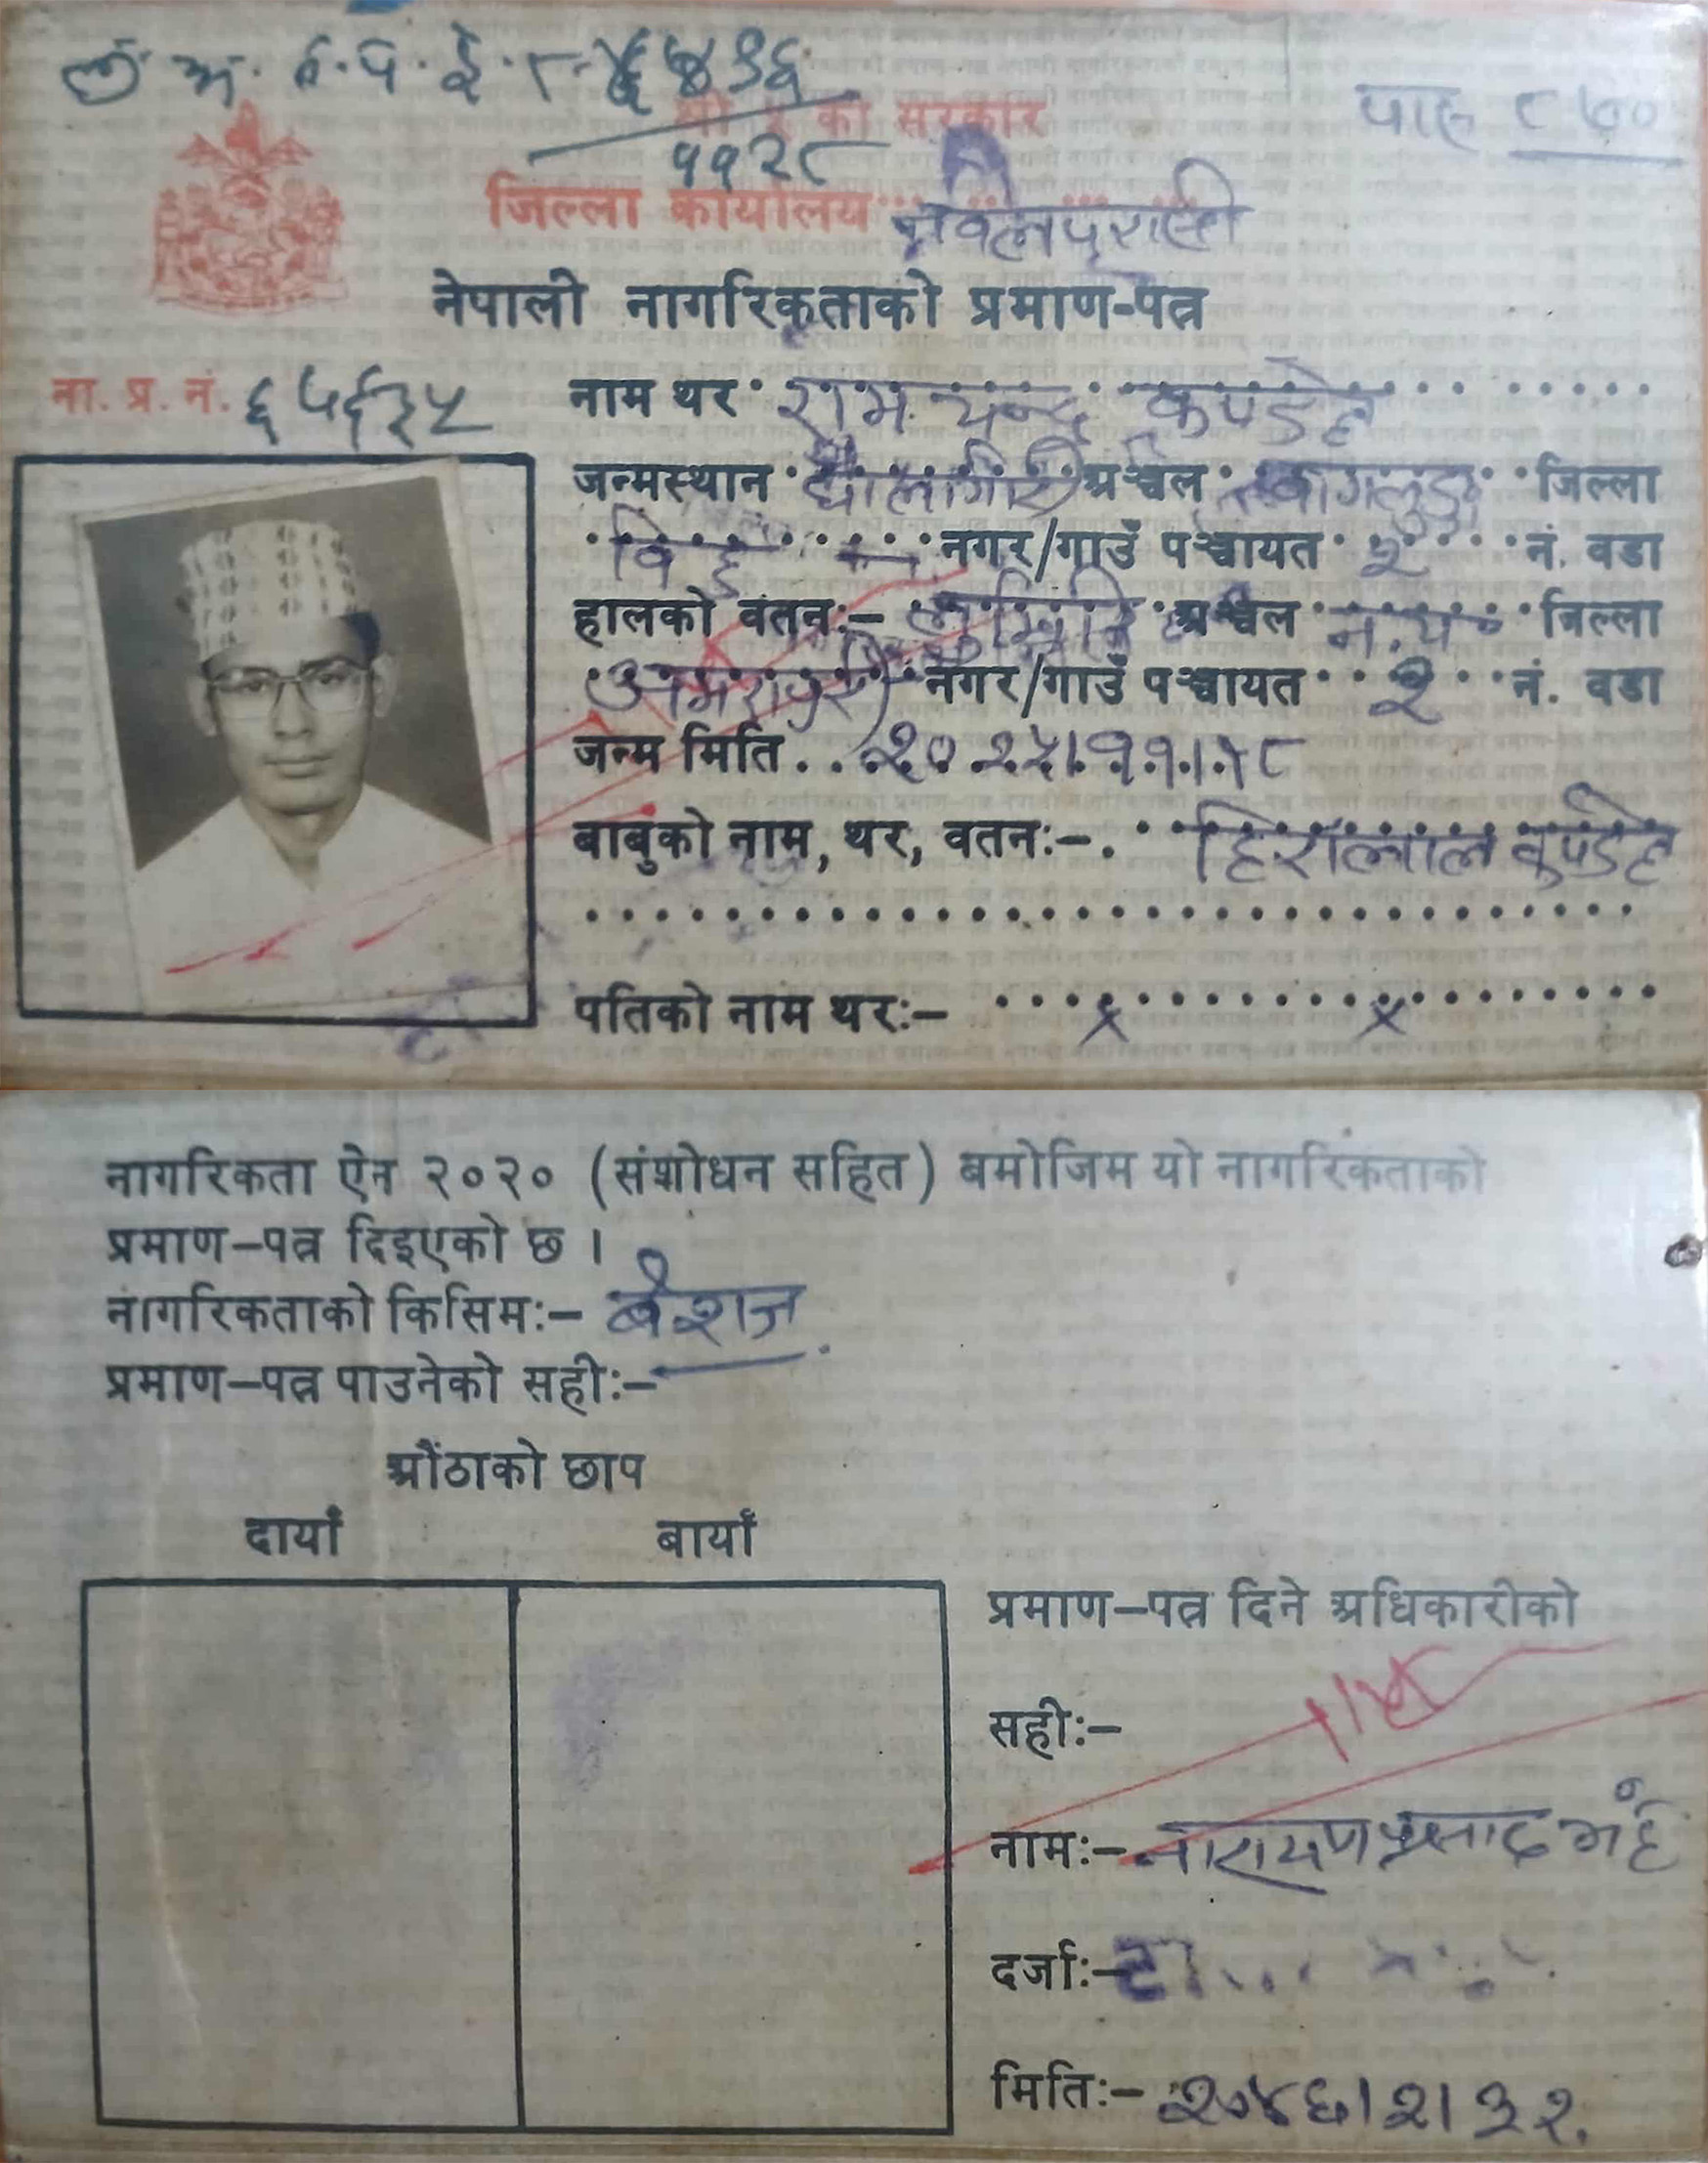 लु. अ. द. प. ई.
श्री ५ को सरकार
११२८
जिल्ला कार्यालय नवलपरासी
नेपाली नागरिकताको प्रमाण-पत्र
ना. प्र. नं.
नाम थर राम चन्द्र कुण्डेह
जन्मस्थान धौलागिरी अञ्चल बागलुङ जिल्ला
नगर/गाउँ पञ्चायत २ नं. वडा
हालको वतन:- लुम्बिनी अञ्चल न.प. जिल्ला
अमरापुरी नगर/गाउँ पञ्चायत २ नं. वडा
जन्म मिति २०२५।११।१८
बाबुको नाम, थर, वतन:- हिरालाल कुण्डेह
पतिको नाम थर:- × ×
नागरिकता ऐन २०२० (संशोधन सहित) बमोजिम यो नागरिकताको
प्रमाण-पत्र दिइएको छ ।
नागरिकताको किसिम:- बंशज
प्रमाण-पत्र पाउनेको सही:-
औंठाको छाप
दायाँ बायाँ
प्रमाण-पत्र दिने अधिकारीको
सही:-
नाम:- नारायण प्रसाद
दर्जा:-
मिति:- २०४६।२।३२